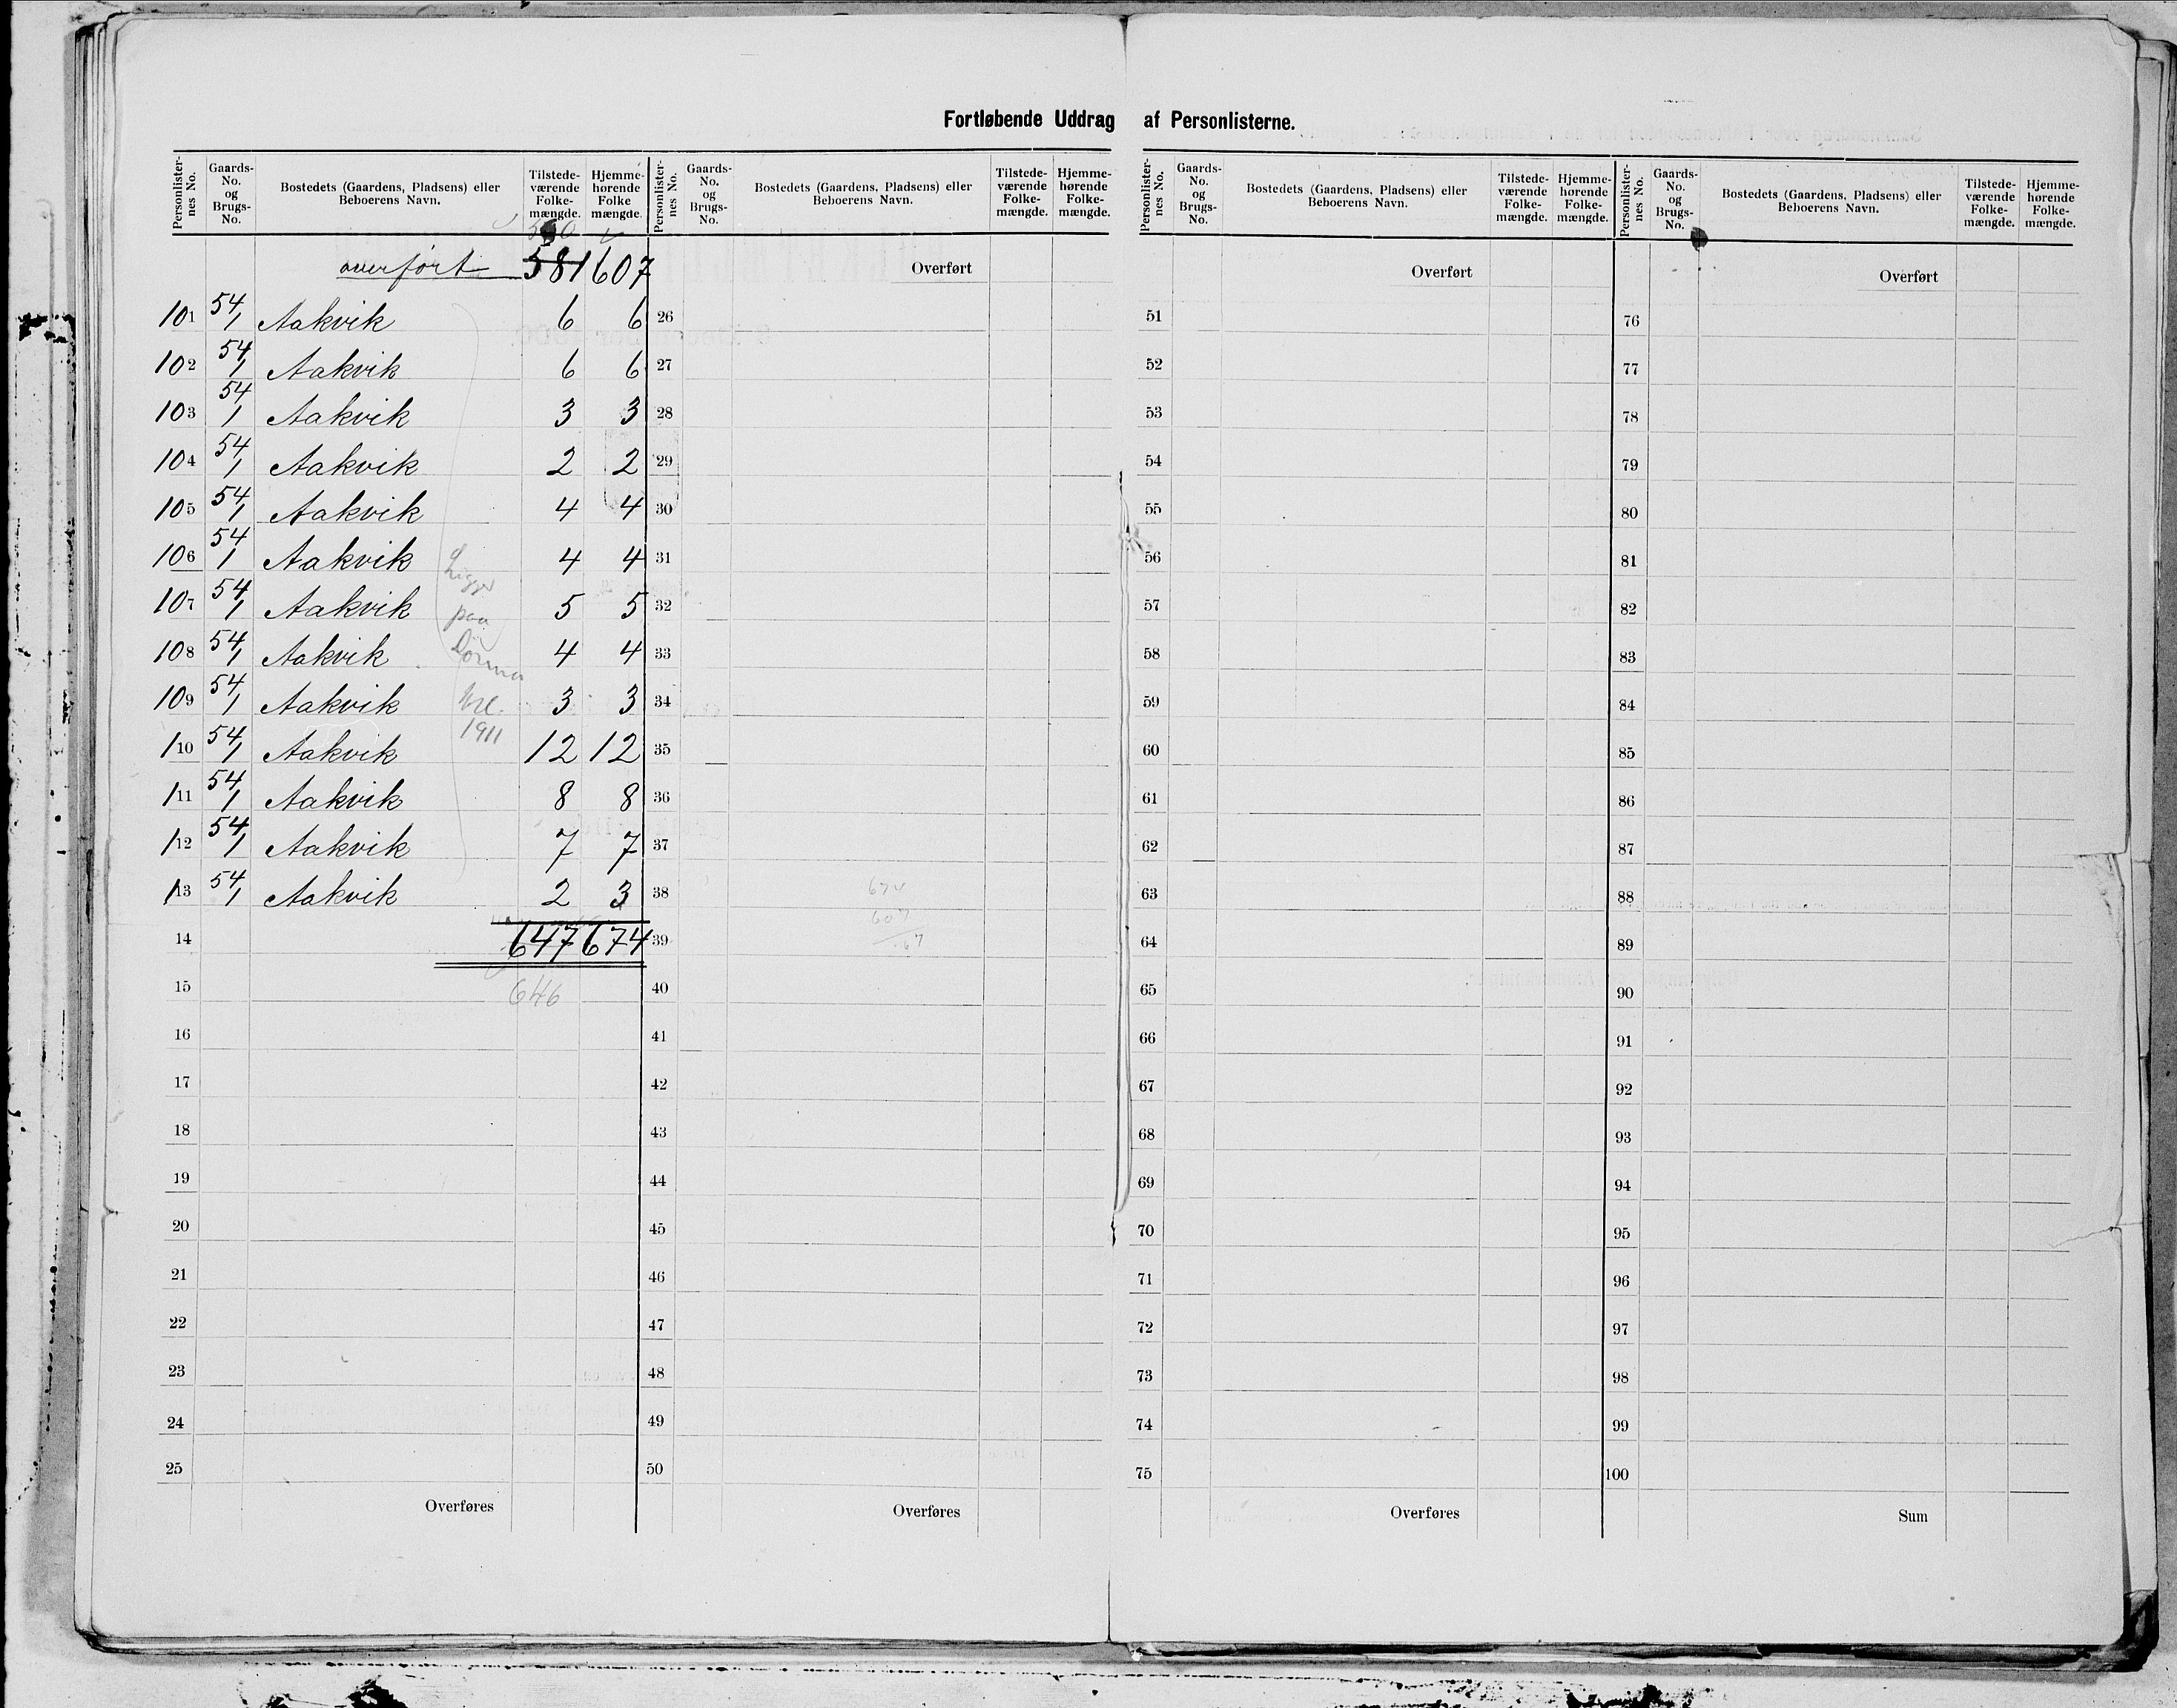 Fortløbende Uddrag af Personlisterne.
Personlister-nes No. Gaards-No. og Brugs-No. Bostedets (Gaardens, Pladsens) eller Beboerens Navn. Tilstede-værende Folke-mængde. Hjemme-hørende Folke mængde.
Personlister-nes No. Gaards-No. og Brugs-No. Bostedets (Gaardens, Pladsens) eller Beboerens Navn. Tilstede-værende Folke-mængde. Hjemme-hørende Folke-mængde.
Personlister-nes No. Gaards-No. og Brugs-No. Bostedets (Gaardens, Pladsens) eller Beboerens Navn. Tilstede-værende Folke-mængde. Hjemme-hørende Folke-mængde.
Personlister-nes No. Gaards-No. og Brugs-No. Bostedets (Gaardens, Pladsens) eller Beboerens Navn. Tilstede-værende Folke-mængde. Hjemme-hørende Folke-mængde.
overført 581 607
101 54/1 Aakvik 6 6
102 54/1 Aakvik 6 6
103 54/1 Aakvik 3 3
104 54/1 Aakvik 2 2
105 54/1 Aakvik 4 4
106 54/1 Aakvik 4 4
107 54/1 Aakvik 5 5
108 54/1 Aakvik 4 4
109 54/1 Aakvik 3 3
110 54/1 Aakvik 12 12
111 54/1 Aakvik 8 8
112 54/1 Aakvik 7 7
113 54/1 Aakvik 2 3
Ligger
paa
1911
14 647 674
15 646
16
17
18
19
20
21
22
23
24
25
Overføres
Overført
26
27
28
29
30
31
32
33
34
35
36
37
38 674
607
39 67
40
41
42
43
44
45
46
47
48
49
50
Overføres
Overført
51
52
53
54
55
56
57
58
59
60
61
62
63
64
65
66
67
68
69
70
71
72
73
74
75
Overføres
Overført
76
77
78
79
80
81
82
83
84
85
86
87
88
89
90
91
92
93
94
95
96
97
98
99
100
Sum